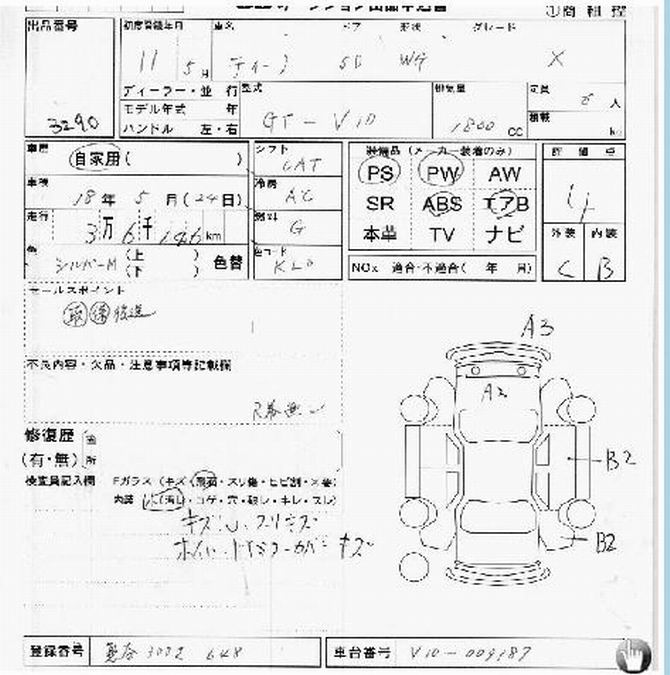 ①商 組 控
出品番号 初度登録年月 車名 ドア 形状 グレード
11 5月 ティーノ 5D WG X
ディーラー・並 行 型式 排気量 定員 5 人
モデル年式 年 積載
3290 ハンドル 左・右 GT-V10 1800 cc kg
車歴 自家用( ) シフト CAT 装備品 (メーカー装着のみ) 評 価 点
PS PW AW
車検 18年 5月(24日) 冷房 AC SR ABS エアB 4
走行 3万6千146km 燃料 G 本革 TV ナビ 外装 内装
色 シルバーM (上 ) (下 ) 色替 色コード KL0 NOx 適合・不適合( 年 月) C B
セールスポイント
取 保 後送
A3
不良内容・欠品・注意事項等記載欄 A2
修復歴 箇所
(有・無) B2
検査員記入欄 Fガラス (キズ・飛石・スリ傷・ヒビ割・×要)
内装 (汚レ・コゲ・穴・破レ・キレ・スレ)
キズU.スリキズ B2
ホイールキャップカバーキズ
登録番号 車台番号 V10-009187